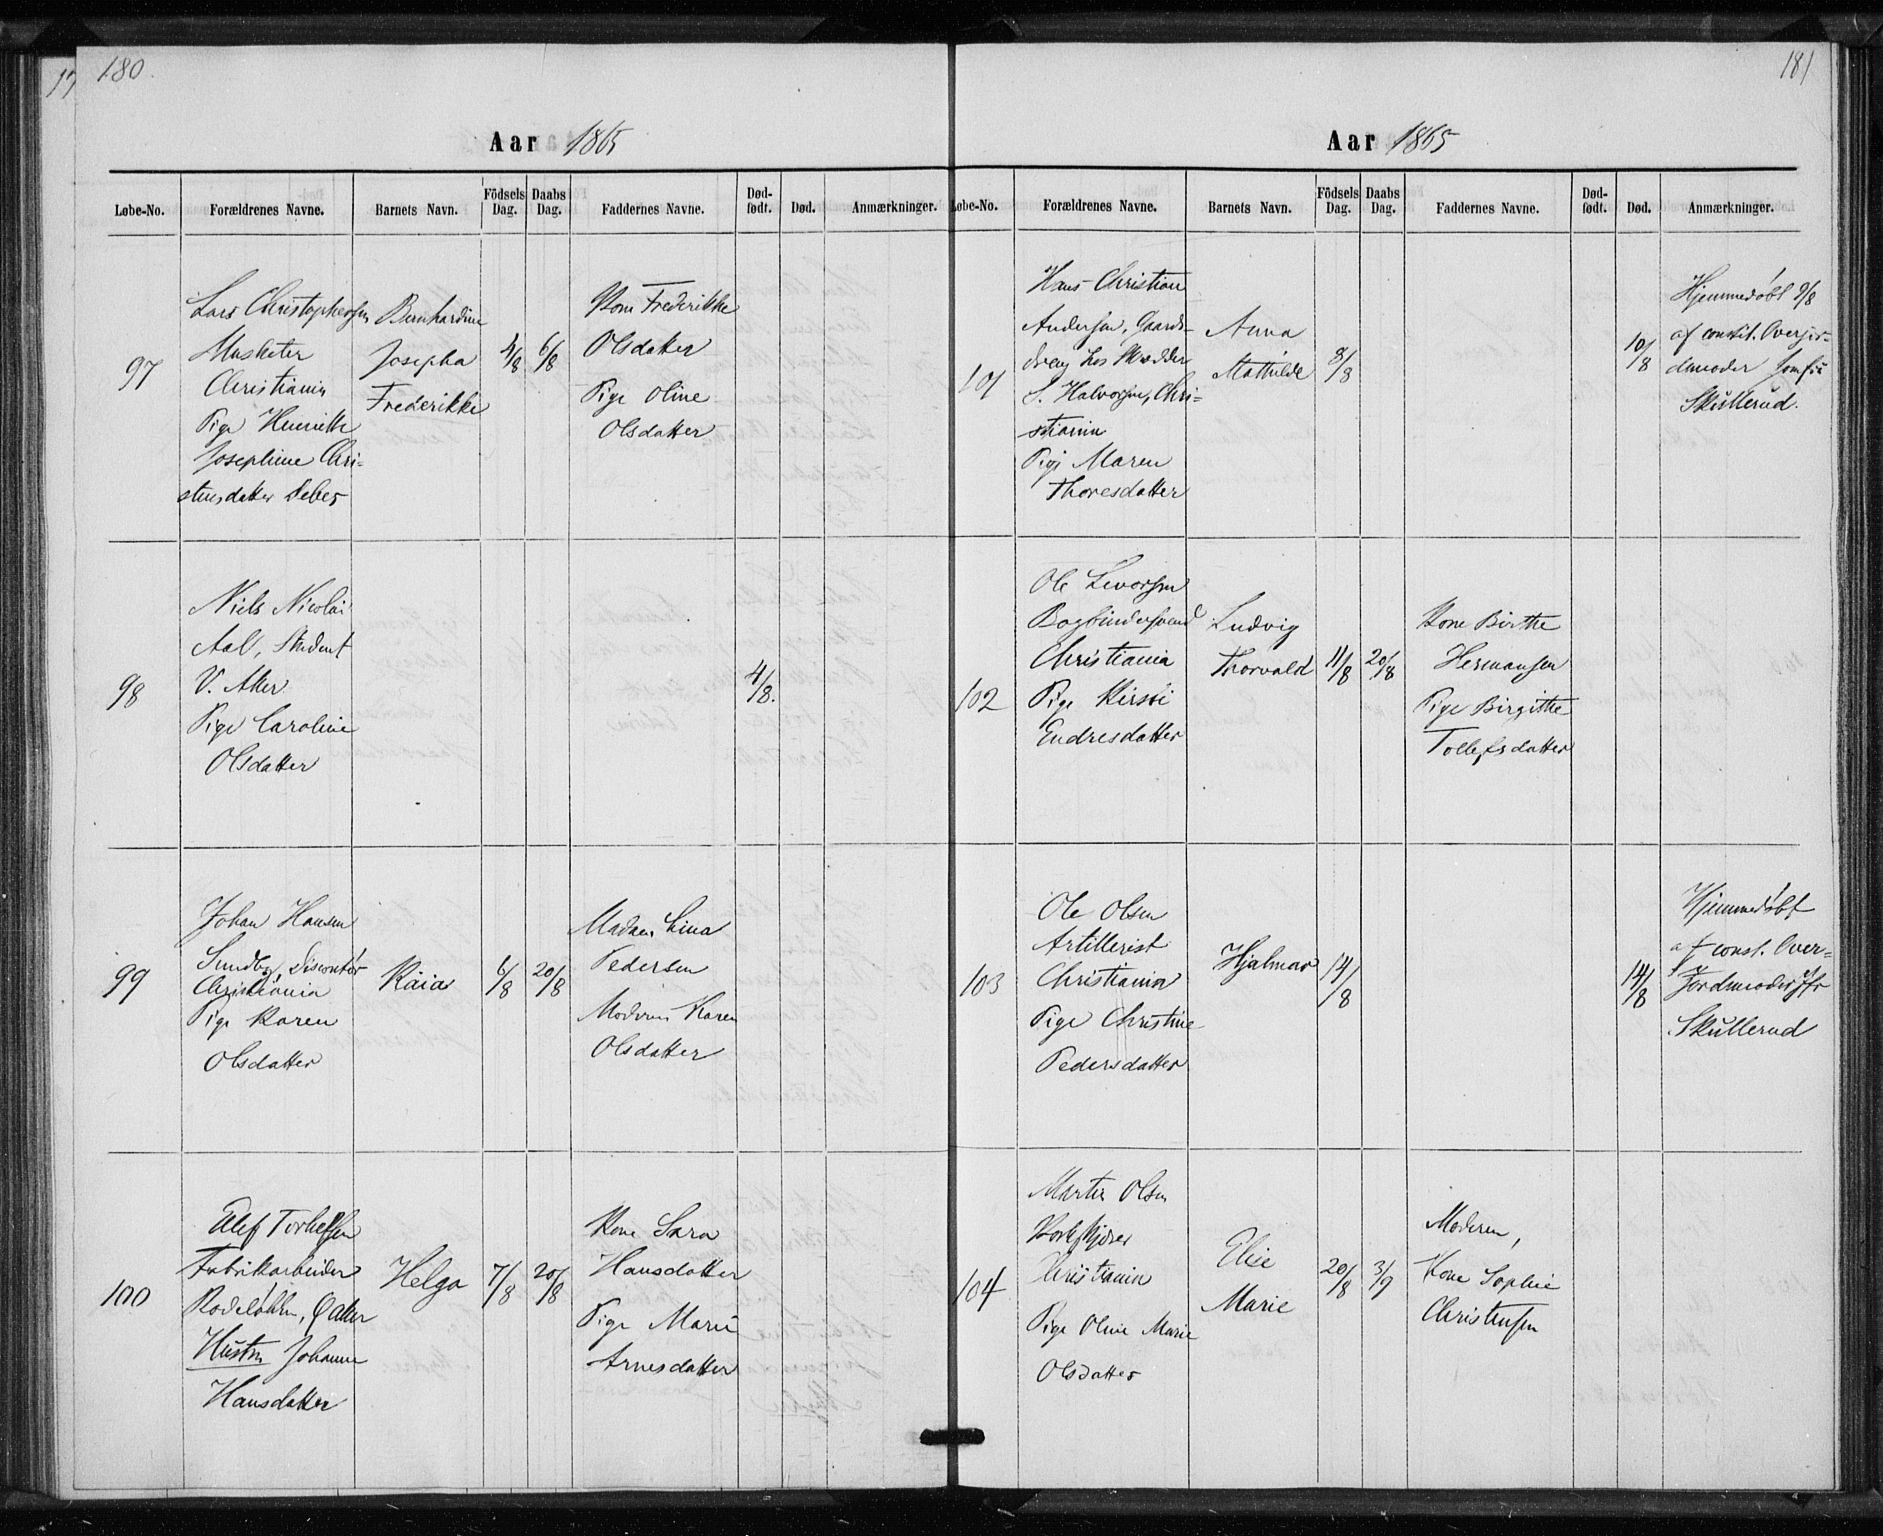 180.
Aar 1865
Løbe-No. Forældrenes Navne. Barnets Navn. Födsels Dag. Daabs Dag. Faddernes Navne. Død-födt. Død. Anmærkninger.
97
Lars Christophersen
Musketer
Christiania
Pige Henriette
Josephine Chri-
stensdatter
Bernhardine
Josepha
Frederikke
4/8
6/8
Kone Frederikke
Olsdatter
Pige Oline
Olsdatter
98
Niels Nicolai
Aal, Student
V. Aker
Pige Caroline
Olsdatter
4/8.
99
Johan Hansen
Sundby,
Christiania
Pige Karen
Olsdatter
Raia
6/8
20/8
Madam Lina
Pedersen
Moderen Karen
Olsdatter
100
Fabrikarbeider
Rodeløkken, Ø Aker
Hustru Johanne
Hansdatter
Helga
7/8
20/8
Kone Sara
Hansdatter
Pige Marie
Arnesdatter
181
Aar 1865
Løbe-No. Forældrenes Navne. Barnets Navn. Födsels Dag. Daabs Dag. Faddernes Navne. Død-födt. Død. Anmærkninger.
101
Hans Christian
Andersen, Gaards-
dreng hos Skrædder
S. Halvorsen, Chri-
stiania
Pige Maren
Thoresdatter
Anna
Mathilde
8/8
10/8
Hjemmedøbt 9/8
af constit. Overjor-
demoder Jomfru
Skullerud.
102
Ole Levorsen
Bogbindersvend
Christiania
Pige Kirsti
Endresdatter
Ludvig
Thorvald
11/8
20/8
Kone Birthe
Hermansen
Pige Birgitte
Tollefsdatter
103
Ole Olsen
Artillerist
Christiania
Pige Christine
Pedersdatter
Hjalmar
14/8
14/8
Hjemmedøbt
af const. Over-
Jordmoder Jfr
Skullerud
104
Martin Olsen
Korkskjærer
Christiania
Pige Oline Marie
Olsdatter
Elise
Marie
20/8
3/9
Moderen,
Kone Sophie
Christensen